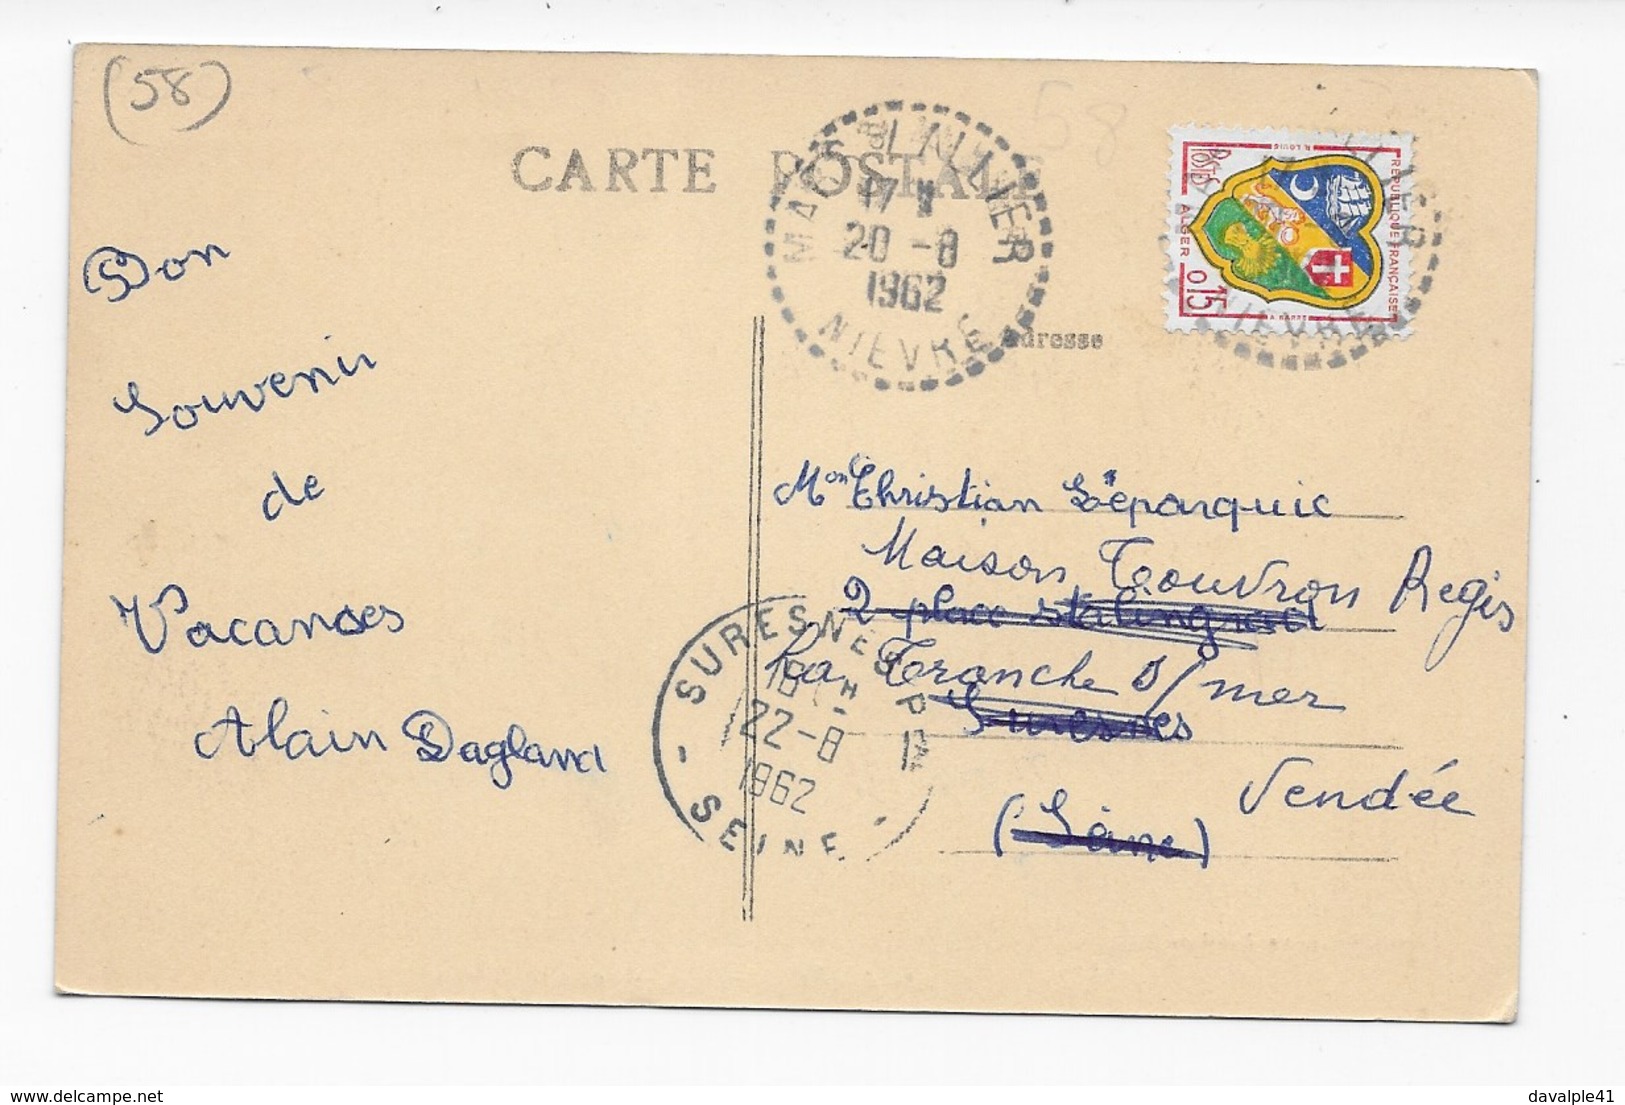 (58)
58
CARTE POSTALE
17 H
20 -8
1962
NIEVRE
REPUBLIQUE FRANÇAISE
POSTES
ALGER
0,15
R. LOUIS
Adresse
Bon
Souvenir
de
Vacances
Alain Dagland
Mon Christian Léparquic
Maison Touvron Regis
2 place stalingrad
La Tranche s/mer
Suresnes
Vendée
(Seine)
SURESNES PPAL
18 H
22-8
1962
SEINE
davalple41